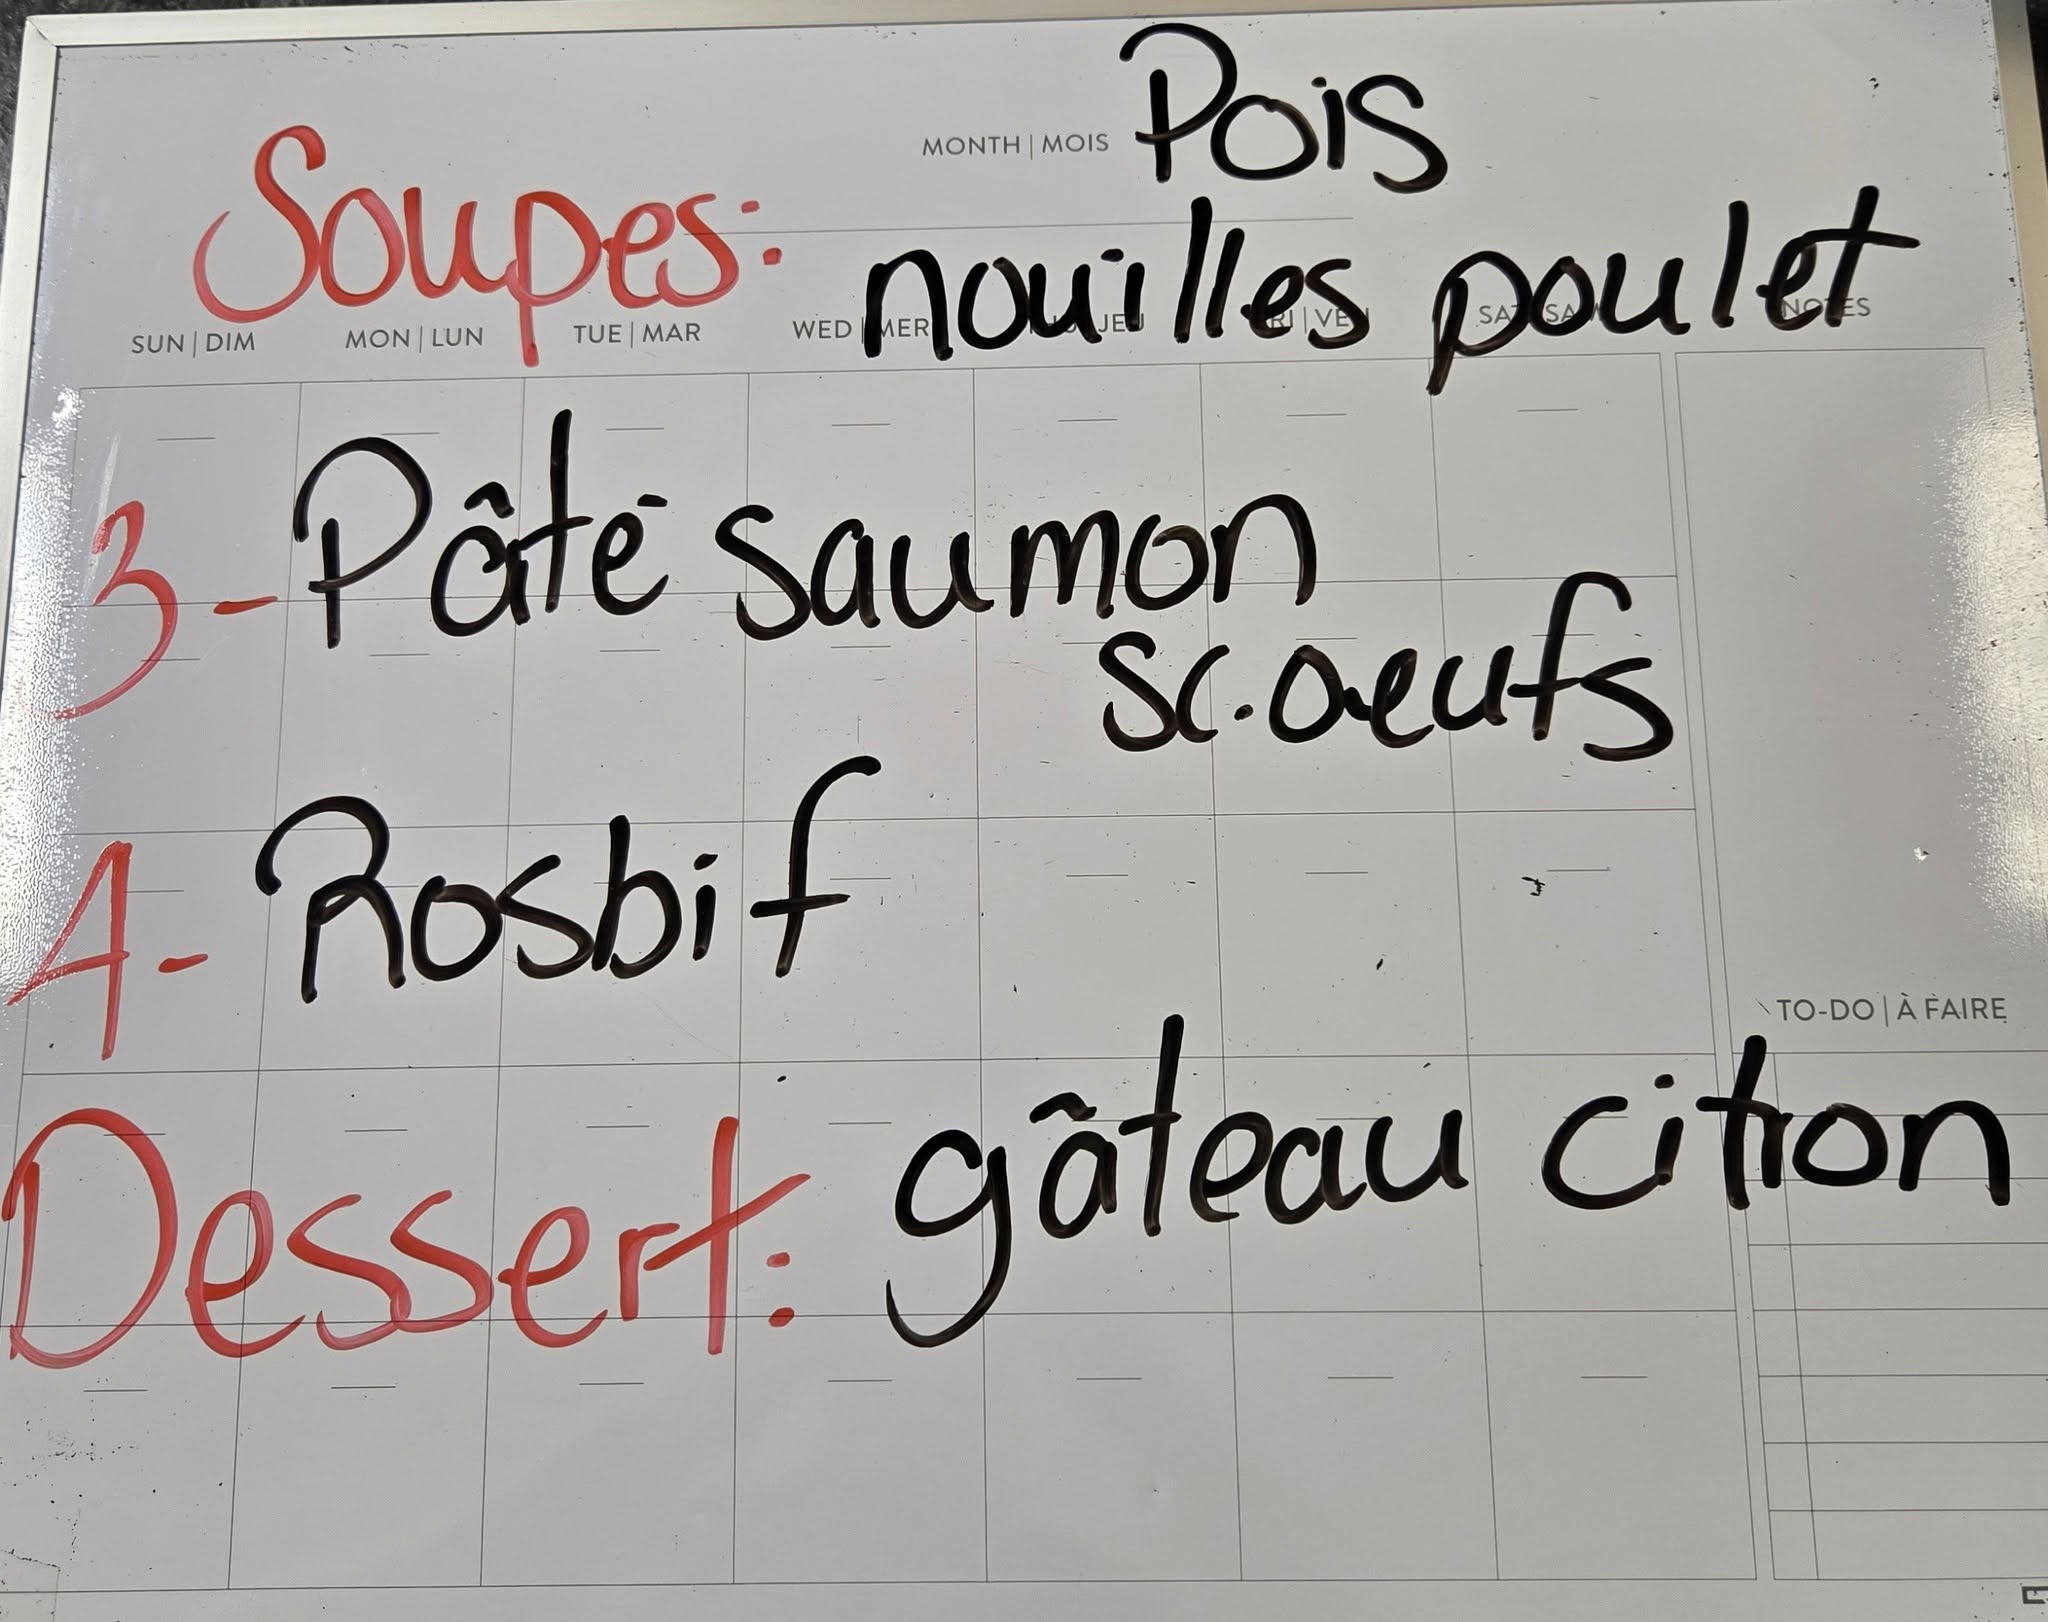 Pois
MONTH | MOIS
Soupes: nouilles poulet
SUN | DIM MON | LUN TUE | MAR WED | MER JEU FRI | VEN SAT | SAM NOTES
3- Pâté saumon
sc. oeufs
4- Rosbif
TO-DO | À FAIRE
Dessert: gâteau citron